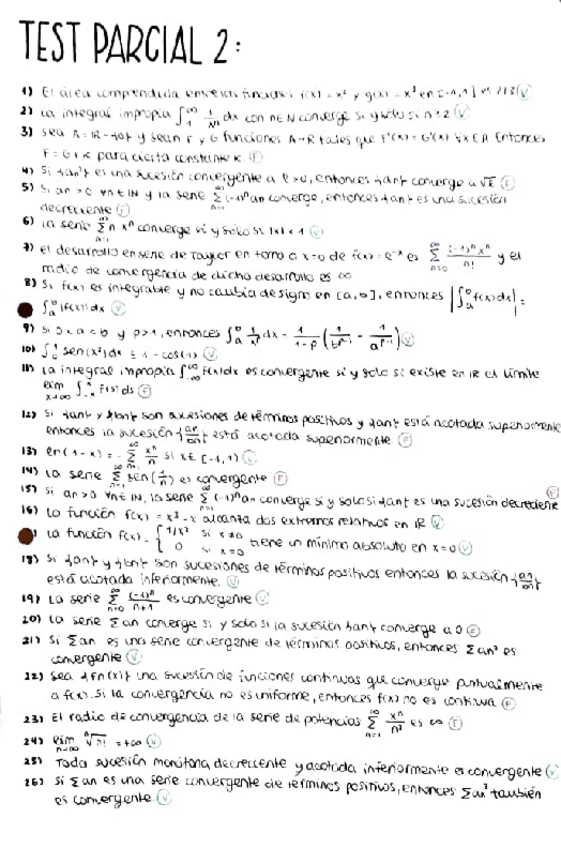 TEST PARCIAL 2:
1) El área comprendida entre las funciones f(x) = x² y g(x) = x³ en [-1,1] es 2/3 (V)
2) La integral impropia ∫₁^∞ 1/Nⁿ dx con n∈N converge si y sólo si n≥2 (V)
3) Sea A = IR-{0} y sean F y G funciones A→R tales que F'(x) = G'(x) ∀x∈A Entonces
F = G + K para cierta constante K. (F)
4) Si {anⁿ} es una sucesión convergente a l>0, entonces {an} converge a √l (F)
5) Si an > 0 ∀n∈IN y la serie Σ (-1)ⁿ an converge, entonces {an} es una sucesión
decreciente (F)
6) La serie Σ n xⁿ converge si y solo si |x| < 1 (V)
7) El desarrollo en serie de Taylor en torno a x=0 de f(x) = e⁻ˣ es Σ (-1)ⁿxⁿ/n! y el
radio de convergencia de dicho desarrollo es ∞
8) Si f(x) es integrable y no cambia de signo en [a,b], entonces |∫ₐᵇ f(x)dx| =
∫ₐᵇ |f(x)| dx (V)
9) Si 0<a<b y p>1, entonces ∫ₐᵇ 1/xᵖ dx = 1/(1-p) (1/bᵖ⁻¹ - 1/aᵖ⁻¹) (V)
10) ∫₀¹ sen(x²) dx ≤ 1 - cos(1) (V)
11) La integral impropia ∫ f(x)dx es convergente si y solo si existe en IR el límite
lim x→∞ ∫₋ₓˣ f(s) ds (F)
12) Si {an} y {bn} son sucesiones de términos positivos y {an} está acotada superiormente
entonces la sucesión {an/bn} está acotada superiormente (F)
13) en(1-x) = - Σ xⁿ/n si x∈[-1,1) (V)
14) La serie Σ sen(1/n) es convergente (F)
15) Si an>0 ∀n∈IN, la serie Σ (-1)ⁿ an converge si y solo si {an} es una sucesión decreciente (F)
16) La función f(x) = x³-x alcanza dos extremos relativos en IR (V)
La función f(x) = { 1/x² si x≠0
0 si x=0 tiene un mínimo absoluto en x=0 (V)
18) Si {an} y {bn} son sucesiones de términos positivos entonces la sucesión {an/bn}
está acotada inferiormente. (V)
19) La serie Σ (-1)ⁿ/(n+1) es convergente (V)
20) La serie Σ an converge si y solo si la sucesión {an} converge a 0 (F)
21) Si Σan es una serie convergente de términos positivos, entonces Σan² es
convergente (V)
22) Sea {fn(x)} una sucesión de funciones continuas que converge puntualmente
a f(x). Si la convergencia no es uniforme, entonces f(x) no es continua (F)
23) El radio de convergencia de la serie de potencias Σ xⁿ/n² es ∞ (F)
24) lim n→∞ ⁿ√n! = +∞ (V)
25) Toda sucesión monótona decreciente y acotada inferiormente es convergente (V)
26) Si Σan es una serie convergente de términos positivos, entonces Σan³ también
es convergente. (V)